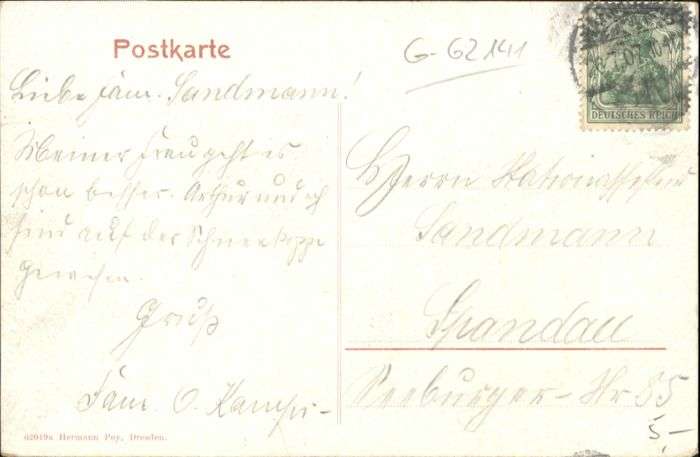 Postkarte
G-62141
DEUTSCHES REICH
Liebe Fam. Sandmann!
Meiner Frau geht es
schon besser. Arthur und ich
sind auf der Schneekoppe
gewesen.
Gruß
Fam. O.
Herrn
Sandmann
Spandau
Seeburger-Str 85
5,-
62019a Hermann Poy, Dresden.